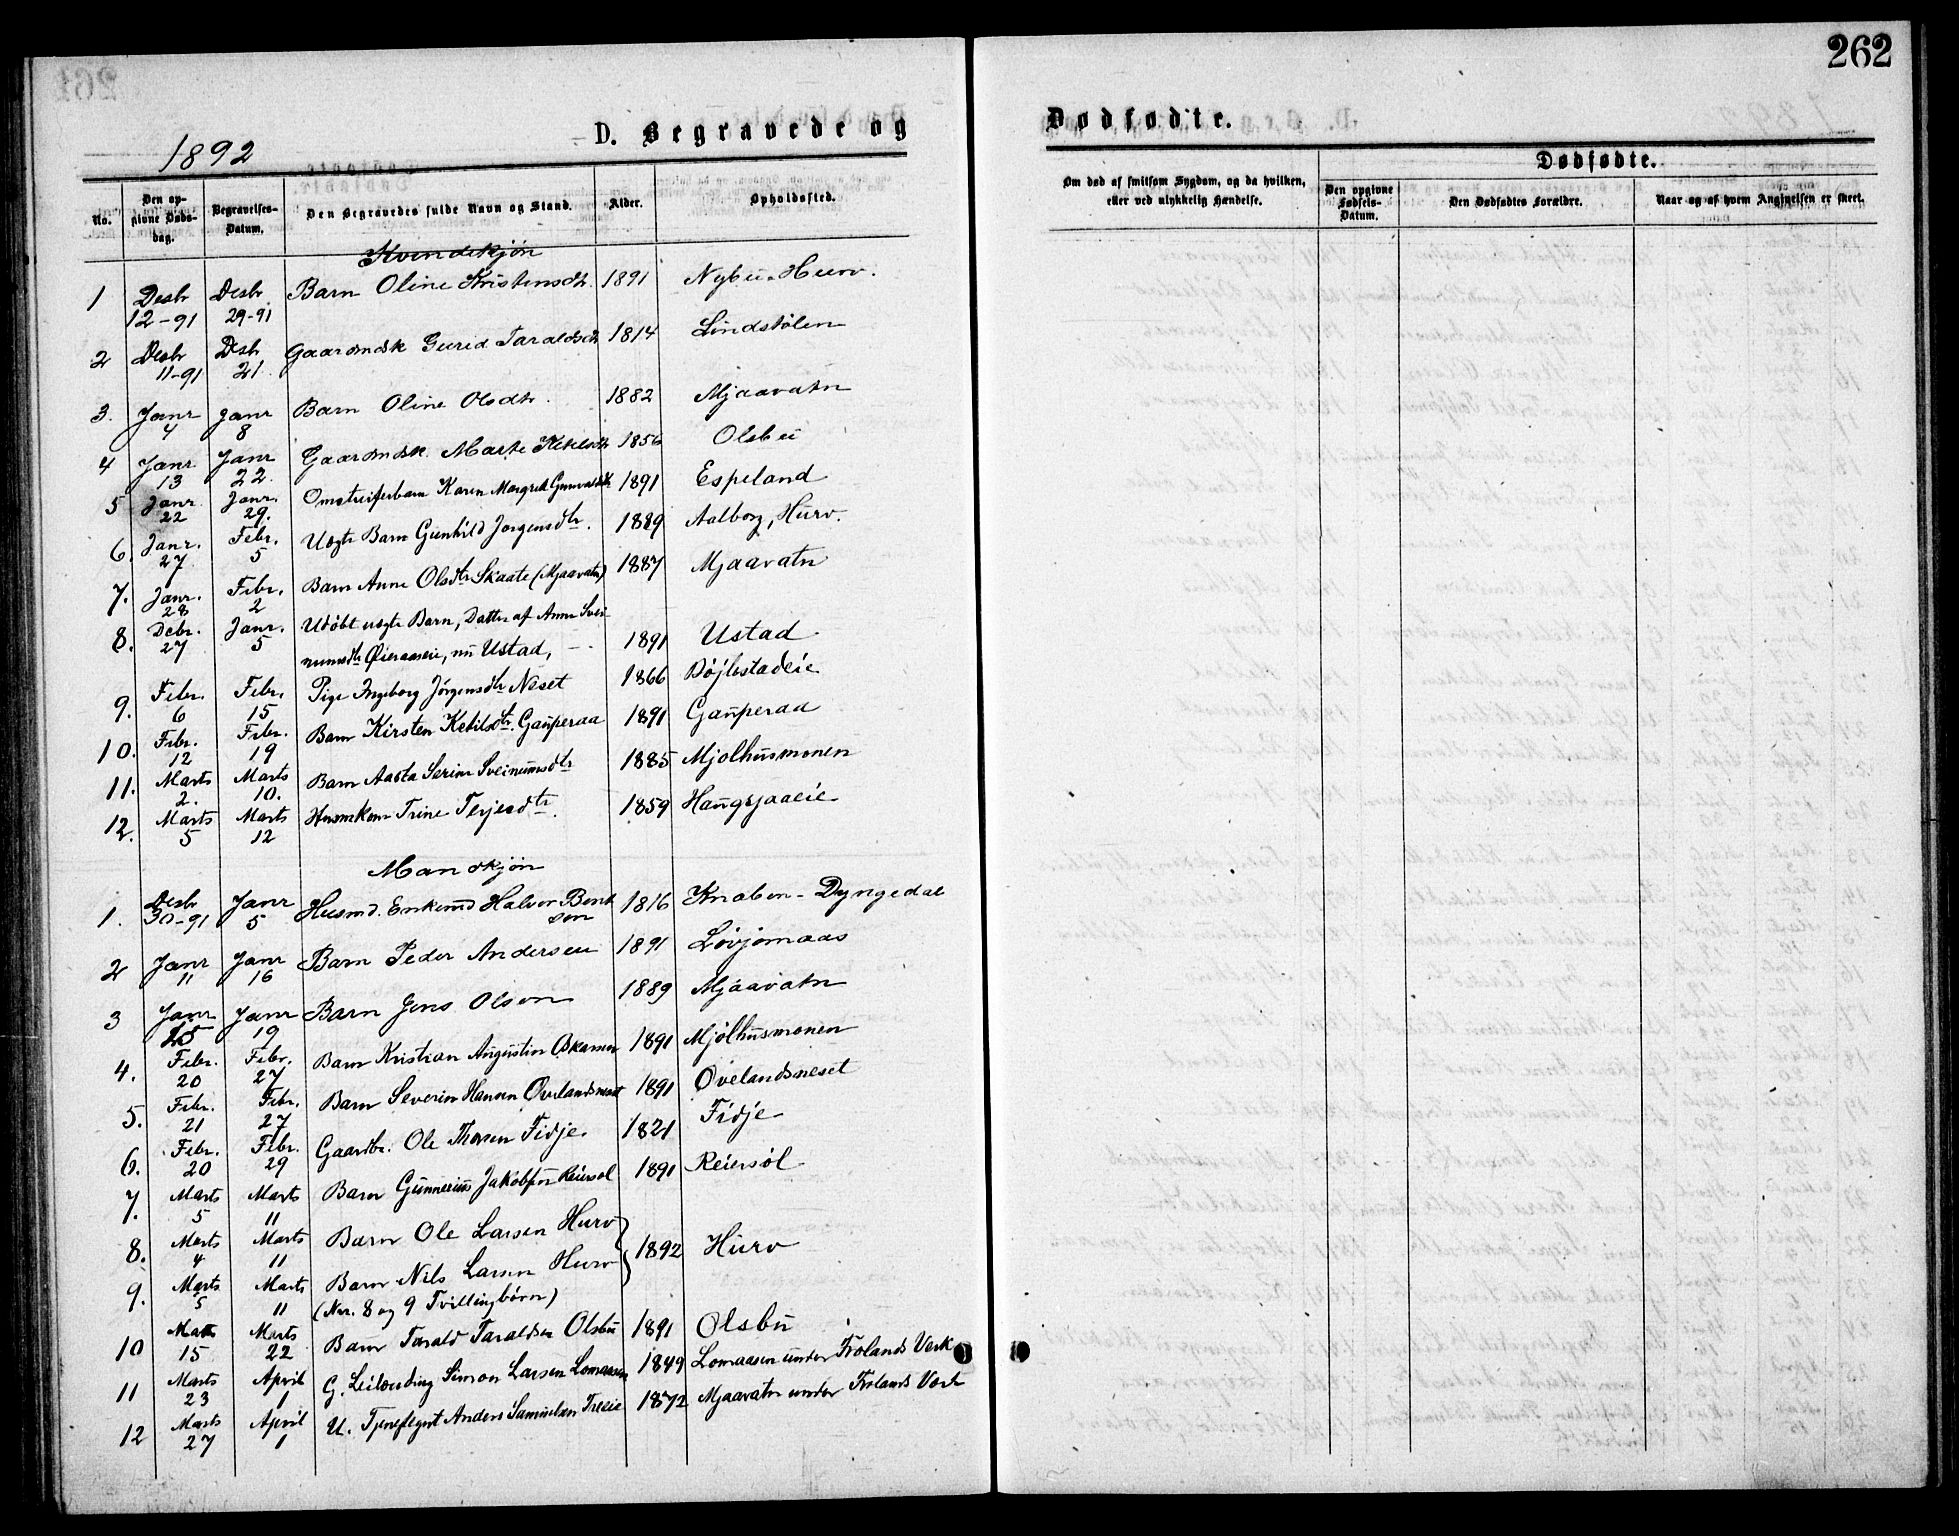 262
1892
D. Begravede og
Dødsfødte.
No. Den opgivne Dødsdag. Begravelses-Datum. Den Begravedes fulde Navn og Stand. Alder. Opholdssted.
Om død af smitsom Sygdom, og da hvilken, eller ved ulykkelig Hændelse.
Dødsfødte.
Den opgivne Fødsels-Datum. Den Dødfødtes Forældre. Naar og af hvem Angivelsen er skeet.
Kvindekjøn
1 Desbr 12-91 Desbr 29-91 Barn Oline Kristensdtr. 1891 Nybu-Hurv.
2 Desbr 11-91 Dsbr 21 Gaardmdsk Gurid Taraldsdtr 1814 Lindstølen
3. Janr 4 Janr 8 Barn Oline Olsdtr. 1882 Mjaavatn
4 Janr 13 Janr 22. Gaardmdsk. Marte Kitelsdtr 1856 Olsbu
5 Janr. 22 Janr. 29. Omstreiferbarn Karen Margret Gunvaldsdtr 1891 Espeland
6. Janr. 27 Febr. 5 Uægte Barn Gunhild Jørgensdtr. 1889 Aalborg, Hurv.
7. Janr. 28 Febr. 2 Barn Anne Olsdtr Skaate (Mjaavatn) 1887 Mjaavatn
8. Debr. 27 Janr. 5 Udøbt uægte Barn, Datter af Anne Svei-
numsdtr Øieraaseie, nu Ustad, 1891 Ustad
9. Febr. 6 Febr. 15 Pige Ingeborg Jørgensdtr Neset 1866 Bøjlestadeie
10. Febr. 12 Febr. 19 Barn Kirsten Ketilsdtr. Gauperaa 1891 Gauperaa
11. Marts 2. Marts 10. Barn Aasta Serine Sveinumsdtr 1885 Mjølhusmonen
12. Marts 5 Marts 12 Husmkone Trine Terjesdtr. 1859 Haugsjaaeie
Mandkjøn
1. Desbr 30-91 Janr 5 Husmd. Enkemd Halvor Bent
sen 1816 Knaben-Dyngedal
2 Janr 11 Janr 16 Barn Peder Andersen 1891 Løvjomaas
3 Janr 15 Janr 19 Barn Jens Olsen 1889 Mjaavatn
4. Febr. 20 Febr. 27 Barn Kristian Augustin Oskarsen 1891 Mjølhusmonen
5. Febr. 21 Febr. 27 Barn Severin Hansen Øvelandsneset 1891 Øvelandsneset
6. Febr. 20 Febr. 29 Gaardbr. Ole Thorsen Fidje. 1821 Fidje
7. Marts 5 Marts 11 Barn Gunnerius Jakobsen Reiersøl 1891 Reiersøl
8. Marts 4 Marts 11 Barn Ole Larsen Hurv 1892 Hurv
9. Marts 5 Marts 11 Barn Nils Larsen Hurv
(Nr. 8 og 9 Tvillingbørn)
10 Marts 15 Marts 22 Barn Tarald Taraldsen Olsbu 1891 Olsbu
11 Marts 23 April 1 G. Leilænding Simon Larsen Lomaasen 1849 Lomaasen under Frolands Verk
12 Marts 27 April 1 U. Tjenestegut Anders Samuelsen 1872 Mjaavatn under Frolands Verk